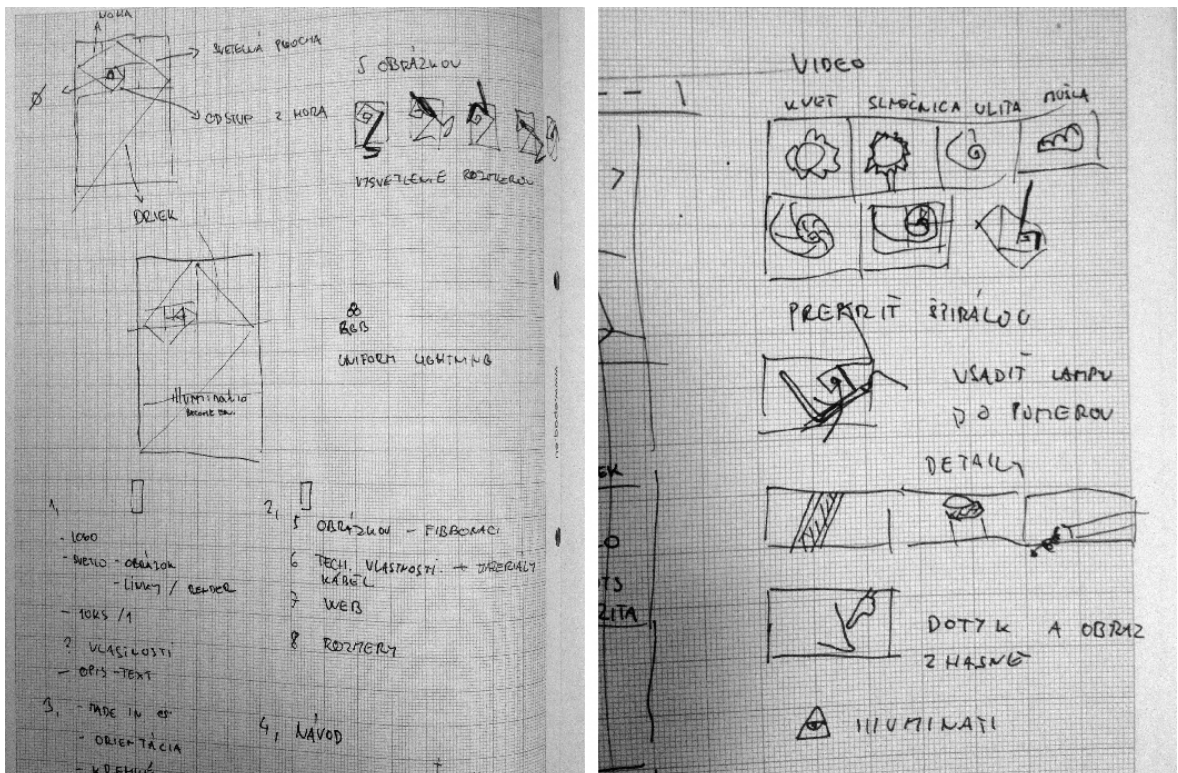 NOHA
SVETELNÁ PLOCHA
ODSTUP Z HORA
DRIEK
5 OBRÁZKOV
VYSVETLENIE ROZMEROV
RGB
UNIFORM LIGHTNING
Illuminatio
1,
- LOGO
- SVETLO - OBRÁZOK
- LINKY / RENDER
- 10KS /1
? VLASTNOSTI
- OPIS - TEXT
3, - MADE IN
- ORIENTÁCIA
2, 5 OBRÁZKOV - FIBBONACI
6 TECH. VLASTNOSTI. + MATERIALY
KÁBEL
7 WEB
8 ROZMERY
4, NÁVOD
VIDEO
KVET SLNEČNICA ULITA MUŠĽA
PREKRIŤ ŠPIRÁLOU
VSADIŤ LAMPU
DO POMEROU
DETAILY
DOTYK A OBRAZ
ZHASNE
ILLUMINATI